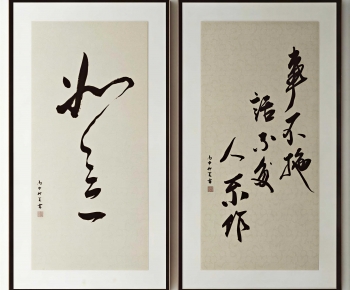 如意
事不拖
话不多
人不作